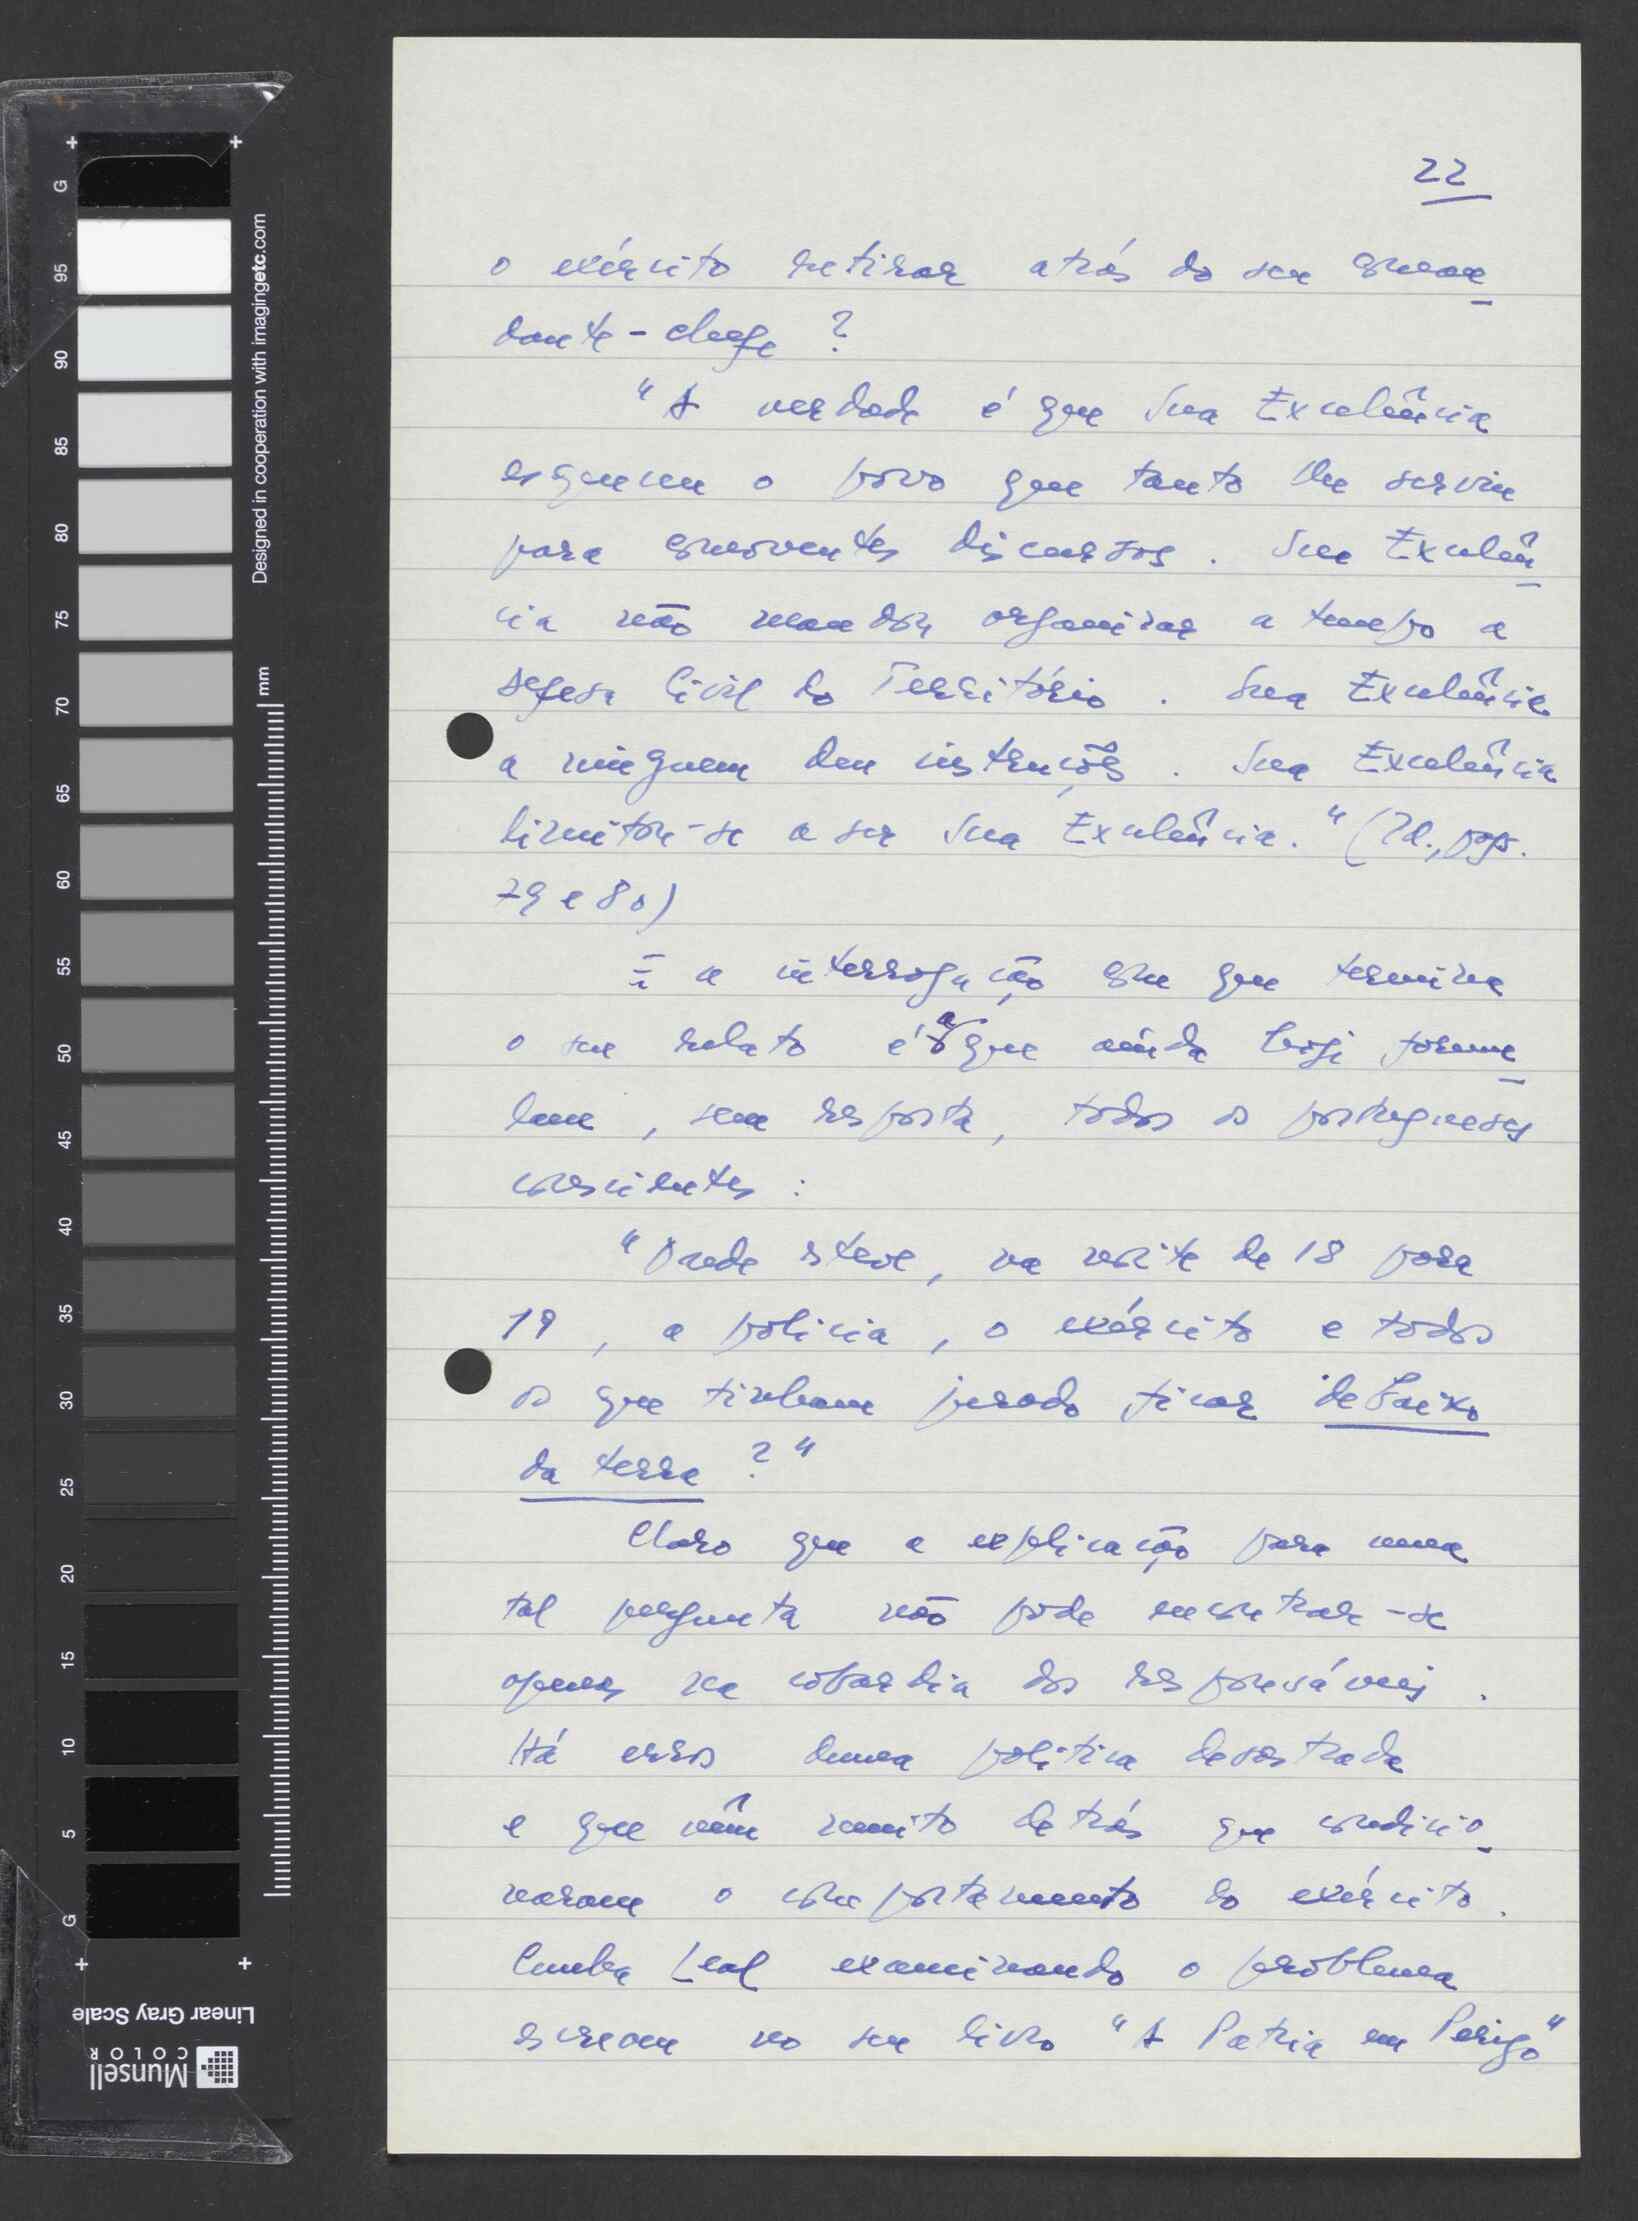 22
o exército retirar atrás do seu coman
dante-chefe ?
"A verdade é que Sua Excelência
esqueceu o povo que tanto lhe serviu
para comoventes discursos. Sua Excelên
cia não mandou organizar a tempo a
defesa civil do Território. Sua Excelência
a ninguem deu instruções. Sua Excelência
limitou-se a ser Sua Excelência." (Id., pgs.
79 e 80)
E a interrogação com que termina
o seu relato é a que ainda hoje formu
lam, sem resposta, todos os portugueses
conscientes :
"Onde esteve, na noite de 18 para
19, a policia, o exército e todos
os que tinham jurado ficar debaixo
da terra ?"
Claro que a explicação para uma
tal pergunta não pode encontrar-se
apenas na cobardia dos responsáveis.
Há erros duma politica desastrada
e que vêm muito detrás que condicio
naram o comportamento do exército.
Cunha Leal examinando o problema
escreveu no seu livro "A Patria em Perigo"
G
95
90
85
80
75
70
65
60
55
50
45
40
35
30
25
20
15
10
5
G
Designed in cooperation with imagingetc.com
mm
Linear Gray Scale
Munsell
COLOR